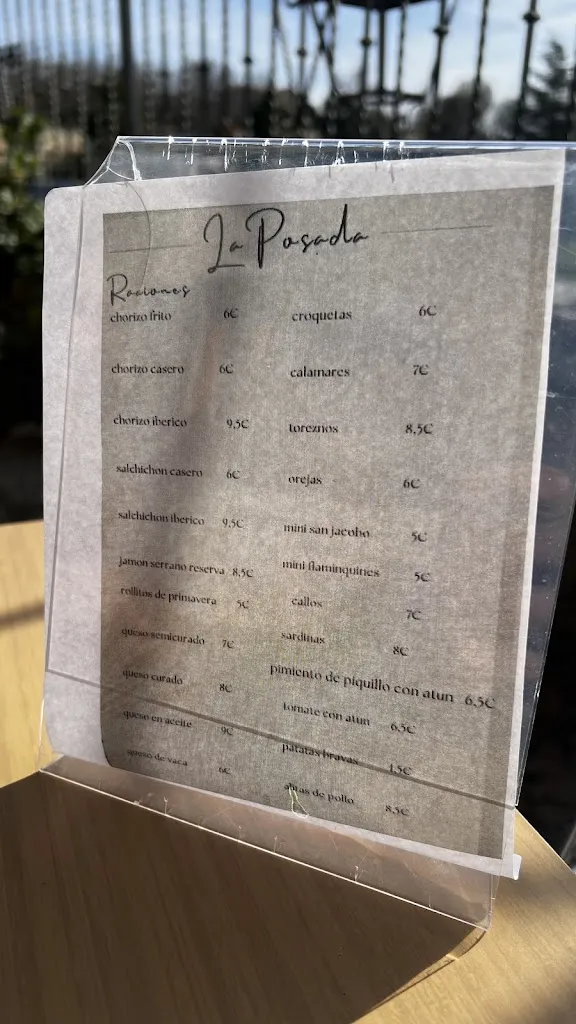 La Posada
Raciones
chorizo frito 6€
chorizo casero 6€
chorizo iberico 9,5€
salchichon casero 6€
salchichon iberico 9,5€
jamon serrano reserva 8,5€
rollitos de primavera 5€
queso semicurado 7€
queso curado 8€
queso en aceite 9€
queso de vaca 6€
croquetas 6€
calamares 7€
toreznos 8,5€
orejas 6€
mini san jacobo 5€
mini flaminquines 5€
callos 7€
sardinas 8€
pimiento de piquillo con atun 6,5€
tomate con atun 6,5€
patatas bravas 4,5€
alitas de pollo 8,5€